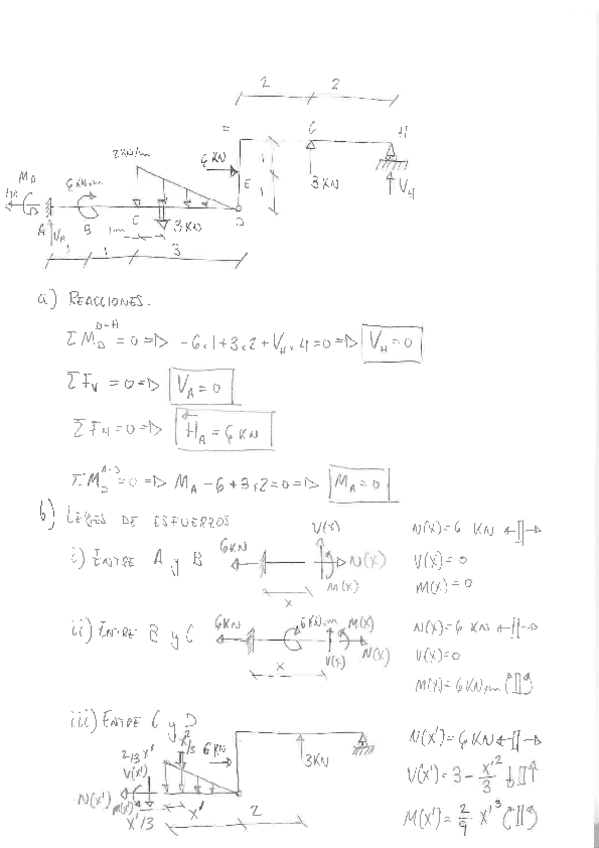 2 2
G H
2 KN/m 6 KN 1
MA 6 KN·m E 3 KN VH
HA 1
A VA B C 3 KN D
1m
1 1 3
a) REACCIONES.
ΣM_D^{D-H} = 0 => -6×1+3×2+V_H×4=0 => V_H=0
ΣF_V = 0 => V_A=0
ΣF_H = 0 => H_A = 6 KN
ΣM_D^{A-D} = 0 => M_A - 6 + 3×2 = 0 => M_A=0
b) LEYES DE ESFUERZOS
i) ENTRE A y B 6KN V(X) N(X) M(X) X
N(X)=6 KN
V(X)=0
M(X)=0
ii) ENTRE B y C 6KN 6 KN·m M(X) V(X) N(X) X
N(X)=6 KN
V(X)=0
M(X)=6 KN·m
iii) ENTRE C y D
2/3 X' X'²/3 6 KN 3KN
V(X')
N(X') M(X')
X'/3 X' 2
N(X')=6 KN
V(X')=3-X'²/3
M(X')=2/9·X'³